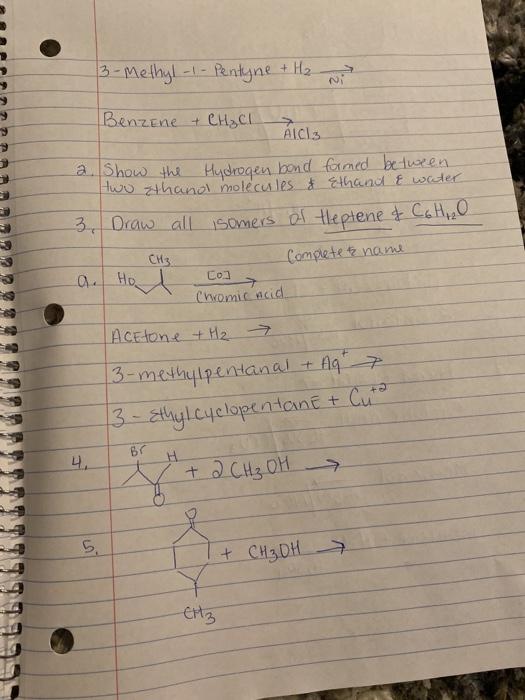 3-Methyl-1-Pentyne + H2 → Ni
Benzene + CH3Cl → AlCl3
2. Show the Hydrogen bond formed between
two ethanol molecules & Ethanol & water
3. Draw all isomers of Heptene & C6H12O
Complete & name
a. HO CH3 [O] → Chromic acid
Acetone + H2 →
3-methylpentanal + Ag+ →
3-Ethylcyclopentane + Cu+2
4. Br H O + 2 CH3OH →
5. O + CH3OH →
CH3